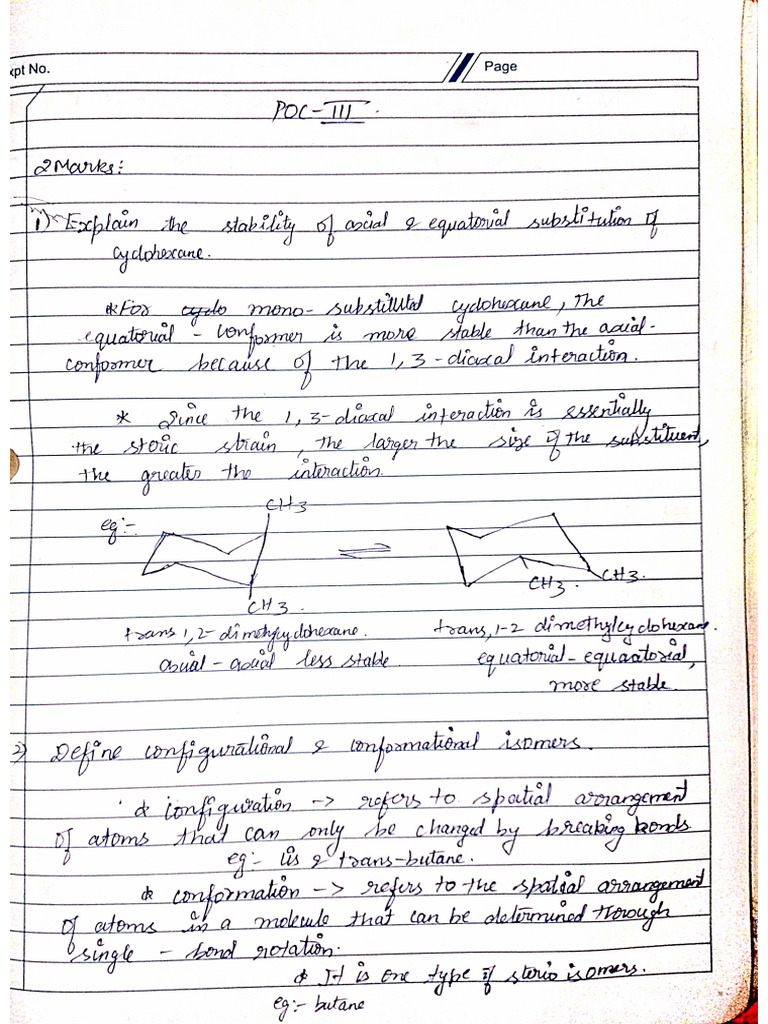 xpt No.
Page
POC-III.
2 Marks:
1) Explain the stability of axial & equatorial substitution of
cyclohexane.
* For cyclo mono-substituted cyclohexane, the
equatorial - conformer is more stable than the axial-
conformer because of the 1,3-diaxal interaction.
* Since the 1,3-diaxal interaction is essentially
the steric strain, the larger the size of the substituent,
the greater the interaction.
CH3
eg:-
CH3. CH3.
CH3.
trans 1,2- dimethycyclohexane. trans,1-2 dimethylcyclohexane.
axial - axial less stable. equatorial - equaatorial,
more stable.
2) Define configurational & conformational isomers.
* configuration -> refers to spatial arrangement
of atoms that can only be changed by breaking bonds
eg:- cis & trans-butane.
* conformation -> refers to the spatial arrangement
of atoms in a molecule that can be determined thorough
single - bond rotation.
* It is one type of sterio isomers.
eg:- butane